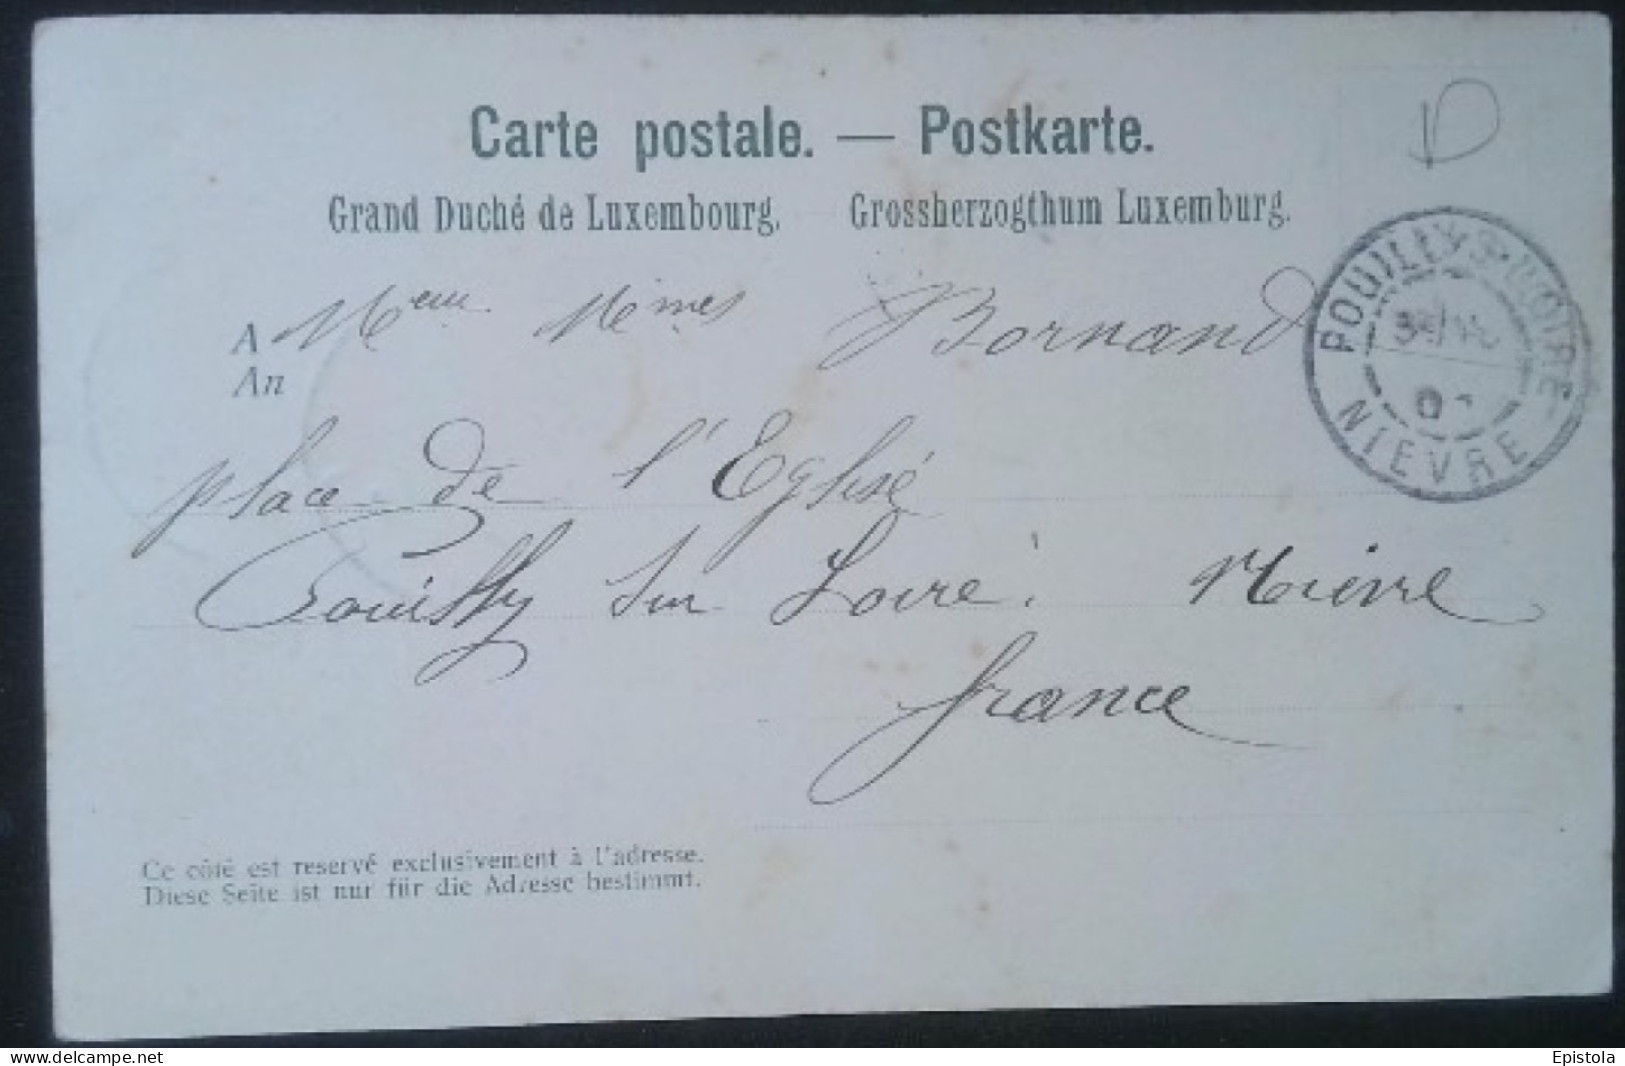 Carte postale. — Postkarte.
Grand Duché de Luxembourg. Grossherzogthum Luxemburg.
D
POUILLY-S-LOIRE
NIEVRE
A
An
Bornand
place de l'Eglise
Pouilly sur Loire. Nièvre
france
Ce côté est reservé exclusivement à l'adresse.
Diese Seite ist nur für die Adresse bestimmt.
delcampe.net
Epistola